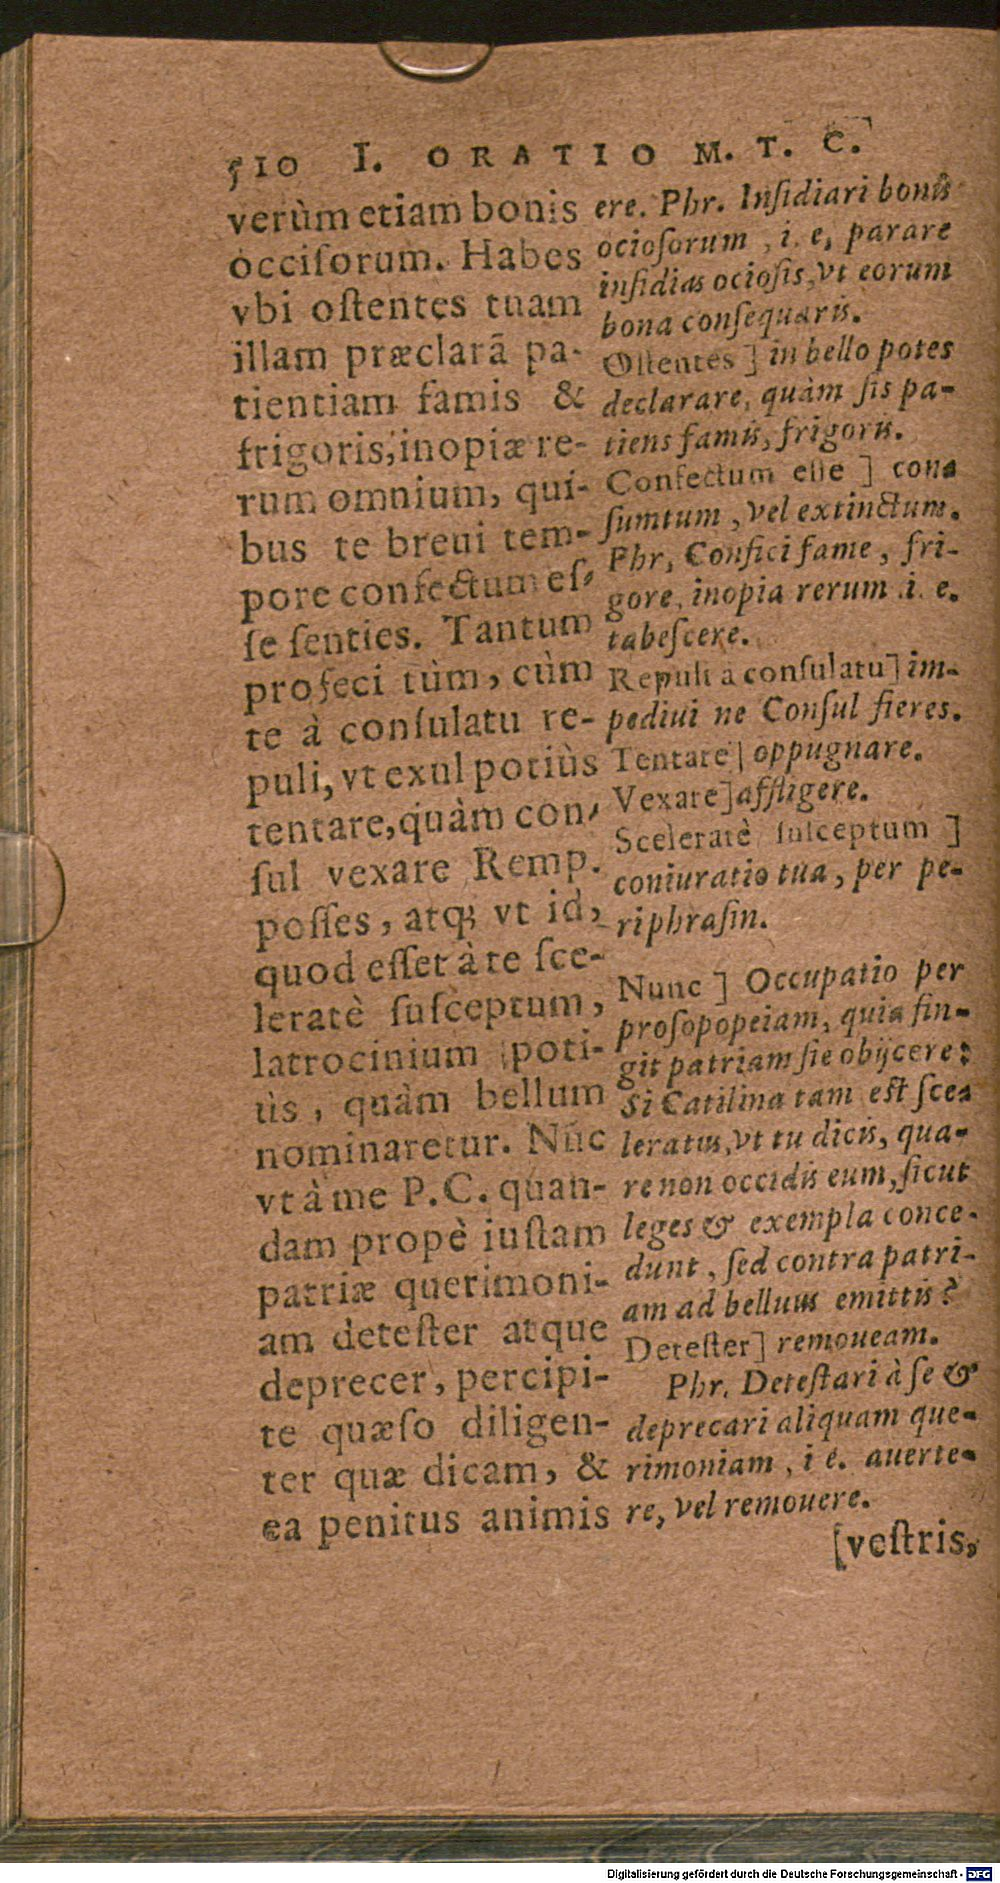 510 I. ORATIO M. T. C.
verùm etiam bonis
occiſorum. Habes
vbi oſtentes tuam
illam præclarã pa-
tientiam famis &
frigoris, inopiæ re-
rum omnium, qui-
bus te breui tem-
pore confectum eſ-
ſe ſenties. Tantum
profeci tùm, cùm
te à conſulatu re-
puli, vt exul potiùs
tentare, quàm con-
ſul vexare Remp.
poſſes, atq; vt id,
quod eſſet à te ſce-
leratè ſuſceptum,
latrocinium poti-
ùs, quàm bellum
nominaretur. Nũc
vt à me P.C. quan-
dam propè iuſtam
patriæ querimoni-
am deteſter atque
deprecer, percipi-
te quæſo diligen-
ter quæ dicam, &
ea penitus animis
ere. Phr. Inſidiari bonis
ocioſorum, i. e, parare
inſidias ocioſis, vt eorum
bona conſequaris.
Oſtentes] in bello potes
declarare, quàm ſis pa-
tiens famis, frigoris.
Confectum eſſe] con-
ſumtum, vel extinctum.
Phr, Confici fame, fri-
gore, inopia rerum .i. e.
tabeſcere.
Repuli à conſulatu] im-
pediui ne Conſul fieres.
Tentare] oppugnare.
Vexare] affligere.
Sceleratè ſuſceptum]
coniuratio tua, per pe-
riphraſin.
Nunc] Occupatio per
proſopopeiam, quia fin-
git patriam ſic obijcere:
Si Catilina tam eſt ſce-
leratus, vt tu dicis, qua-
re non occidis eum, ſicut
leges & exempla conce-
dunt, ſed contra patri-
am ad bellum emittis?
Deteſter] remoueam.
Phr. Deteſtari à ſe &
deprecari aliquam que-
rimoniam, i e. auerte-
re, vel remouere.
[veſtris,
Digitalisierung gefördert durch die Deutsche Forschungsgemeinschaft - DFG